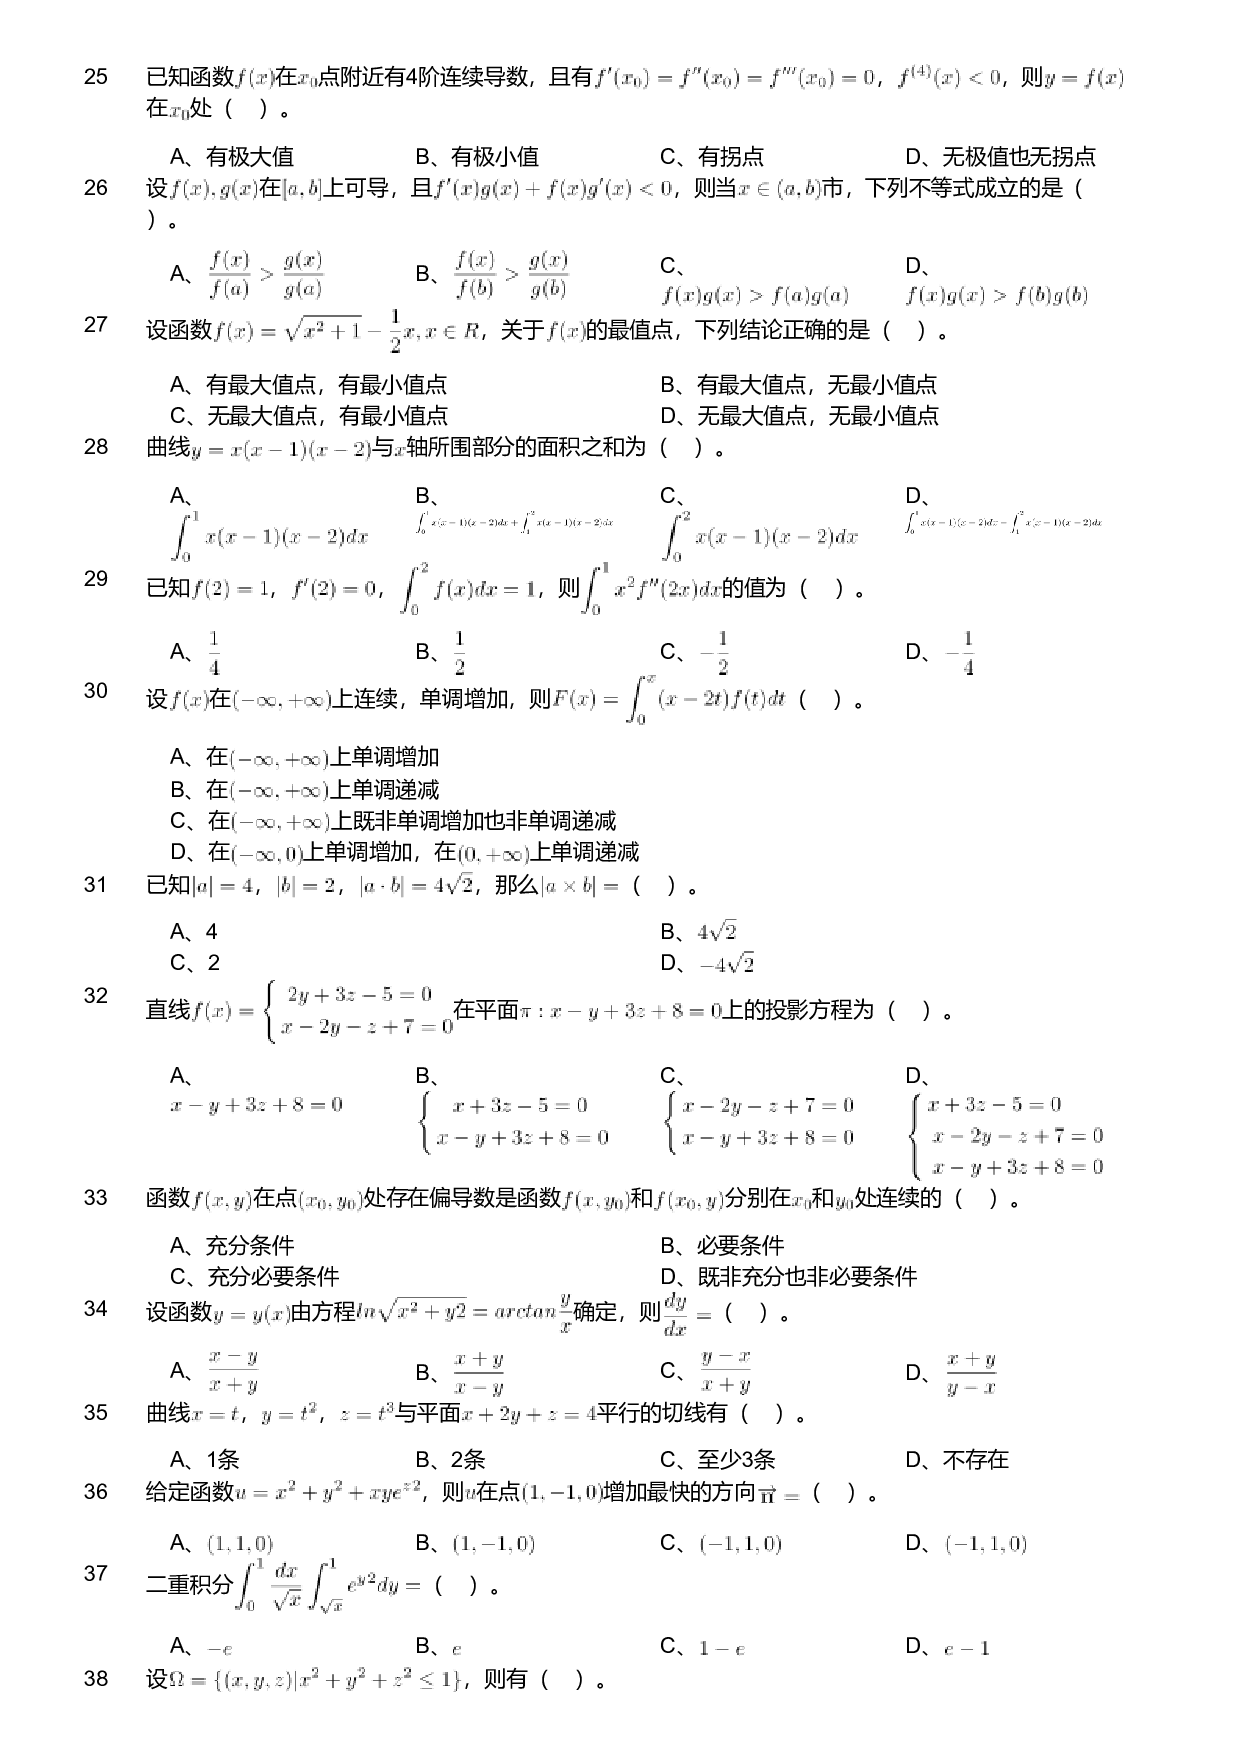 25 已知函数f(x)在x₀点附近有4阶连续导数，且有f′(x₀) = f″(x₀) = f‴(x₀) = 0，f⁽⁴⁾(x) < 0，则y = f(x)
在x₀处（　）。
A、有极大值 B、有极小值 C、有拐点 D、无极值也无拐点
26 设f(x), g(x)在[a, b]上可导，且f′(x)g(x) + f(x)g′(x) < 0，则当x ∈ (a, b)市，下列不等式成立的是（
）。
A、f(x)/f(a) > g(x)/g(a) B、f(x)/f(b) > g(x)/g(b) C、 D、
f(x)g(x) > f(a)g(a) f(x)g(x) > f(b)g(b)
27 设函数f(x) = √(x² + 1) − 1/2 x, x ∈ R，关于f(x)的最值点，下列结论正确的是（　）。
A、有最大值点，有最小值点 B、有最大值点，无最小值点
C、无最大值点，有最小值点 D、无最大值点，无最小值点
28 曲线y = x(x − 1)(x − 2)与x轴所围部分的面积之和为（　）。
A、 B、 C、 D、
∫₀¹ x(x − 1)(x − 2)dx ∫₀¹ x(x − 1)(x − 2)dx + ∫₁² x(x − 1)(x − 2)dx ∫₀² x(x − 1)(x − 2)dx ∫₀¹ x(x − 1)(x − 2)dx − ∫₁² x(x − 1)(x − 2)dx
29 已知f(2) = 1，f′(2) = 0，∫₀² f(x)dx = 1，则∫₀¹ x²f″(2x)dx的值为（　）。
A、1/4 B、1/2 C、−1/2 D、−1/4
30 设f(x)在(−∞, +∞)上连续，单调增加，则F(x) = ∫₀ˣ (x − 2t)f(t)dt（　）。
A、在(−∞, +∞)上单调增加
B、在(−∞, +∞)上单调递减
C、在(−∞, +∞)上既非单调增加也非单调递减
D、在(−∞, 0)上单调增加，在(0, +∞)上单调递减
31 已知|a| = 4，|b| = 2，|a · b| = 4√2，那么|a × b| =（　）。
A、4 B、4√2
C、2 D、−4√2
32 直线f(x) = { 2y + 3z − 5 = 0
x − 2y − z + 7 = 0 在平面π : x − y + 3z + 8 = 0上的投影方程为（　）。
A、 B、 C、 D、
x − y + 3z + 8 = 0 { x + 3z − 5 = 0 { x − 2y − z + 7 = 0 { x + 3z − 5 = 0
x − y + 3z + 8 = 0 x − y + 3z + 8 = 0 x − 2y − z + 7 = 0
x − y + 3z + 8 = 0
33 函数f(x, y)在点(x₀, y₀)处存在偏导数是函数f(x, y₀)和f(x₀, y)分别在x₀和y₀处连续的（　）。
A、充分条件 B、必要条件
C、充分必要条件 D、既非充分也非必要条件
34 设函数y = y(x)由方程ln√(x² + y2) = arctan y/x确定，则dy/dx =（　）。
A、(x − y)/(x + y) B、(x + y)/(x − y) C、(y − x)/(x + y) D、(x + y)/(y − x)
35 曲线x = t，y = t²，z = t³与平面x + 2y + z = 4平行的切线有（　）。
A、1条 B、2条 C、至少3条 D、不存在
36 给定函数u = x² + y² + xyeᶻ²，则u在点(1, −1, 0)增加最快的方向n⃗ =（　）。
A、(1, 1, 0) B、(1, −1, 0) C、(−1, 1, 0) D、(−1, 1, 0)
37 二重积分∫₀¹ dx/√x ∫_√x^1 e^y2 dy =（　）。
A、−e B、e C、1 − e D、e − 1
38 设Ω = {(x, y, z)|x² + y² + z² ≤ 1}，则有（　）。